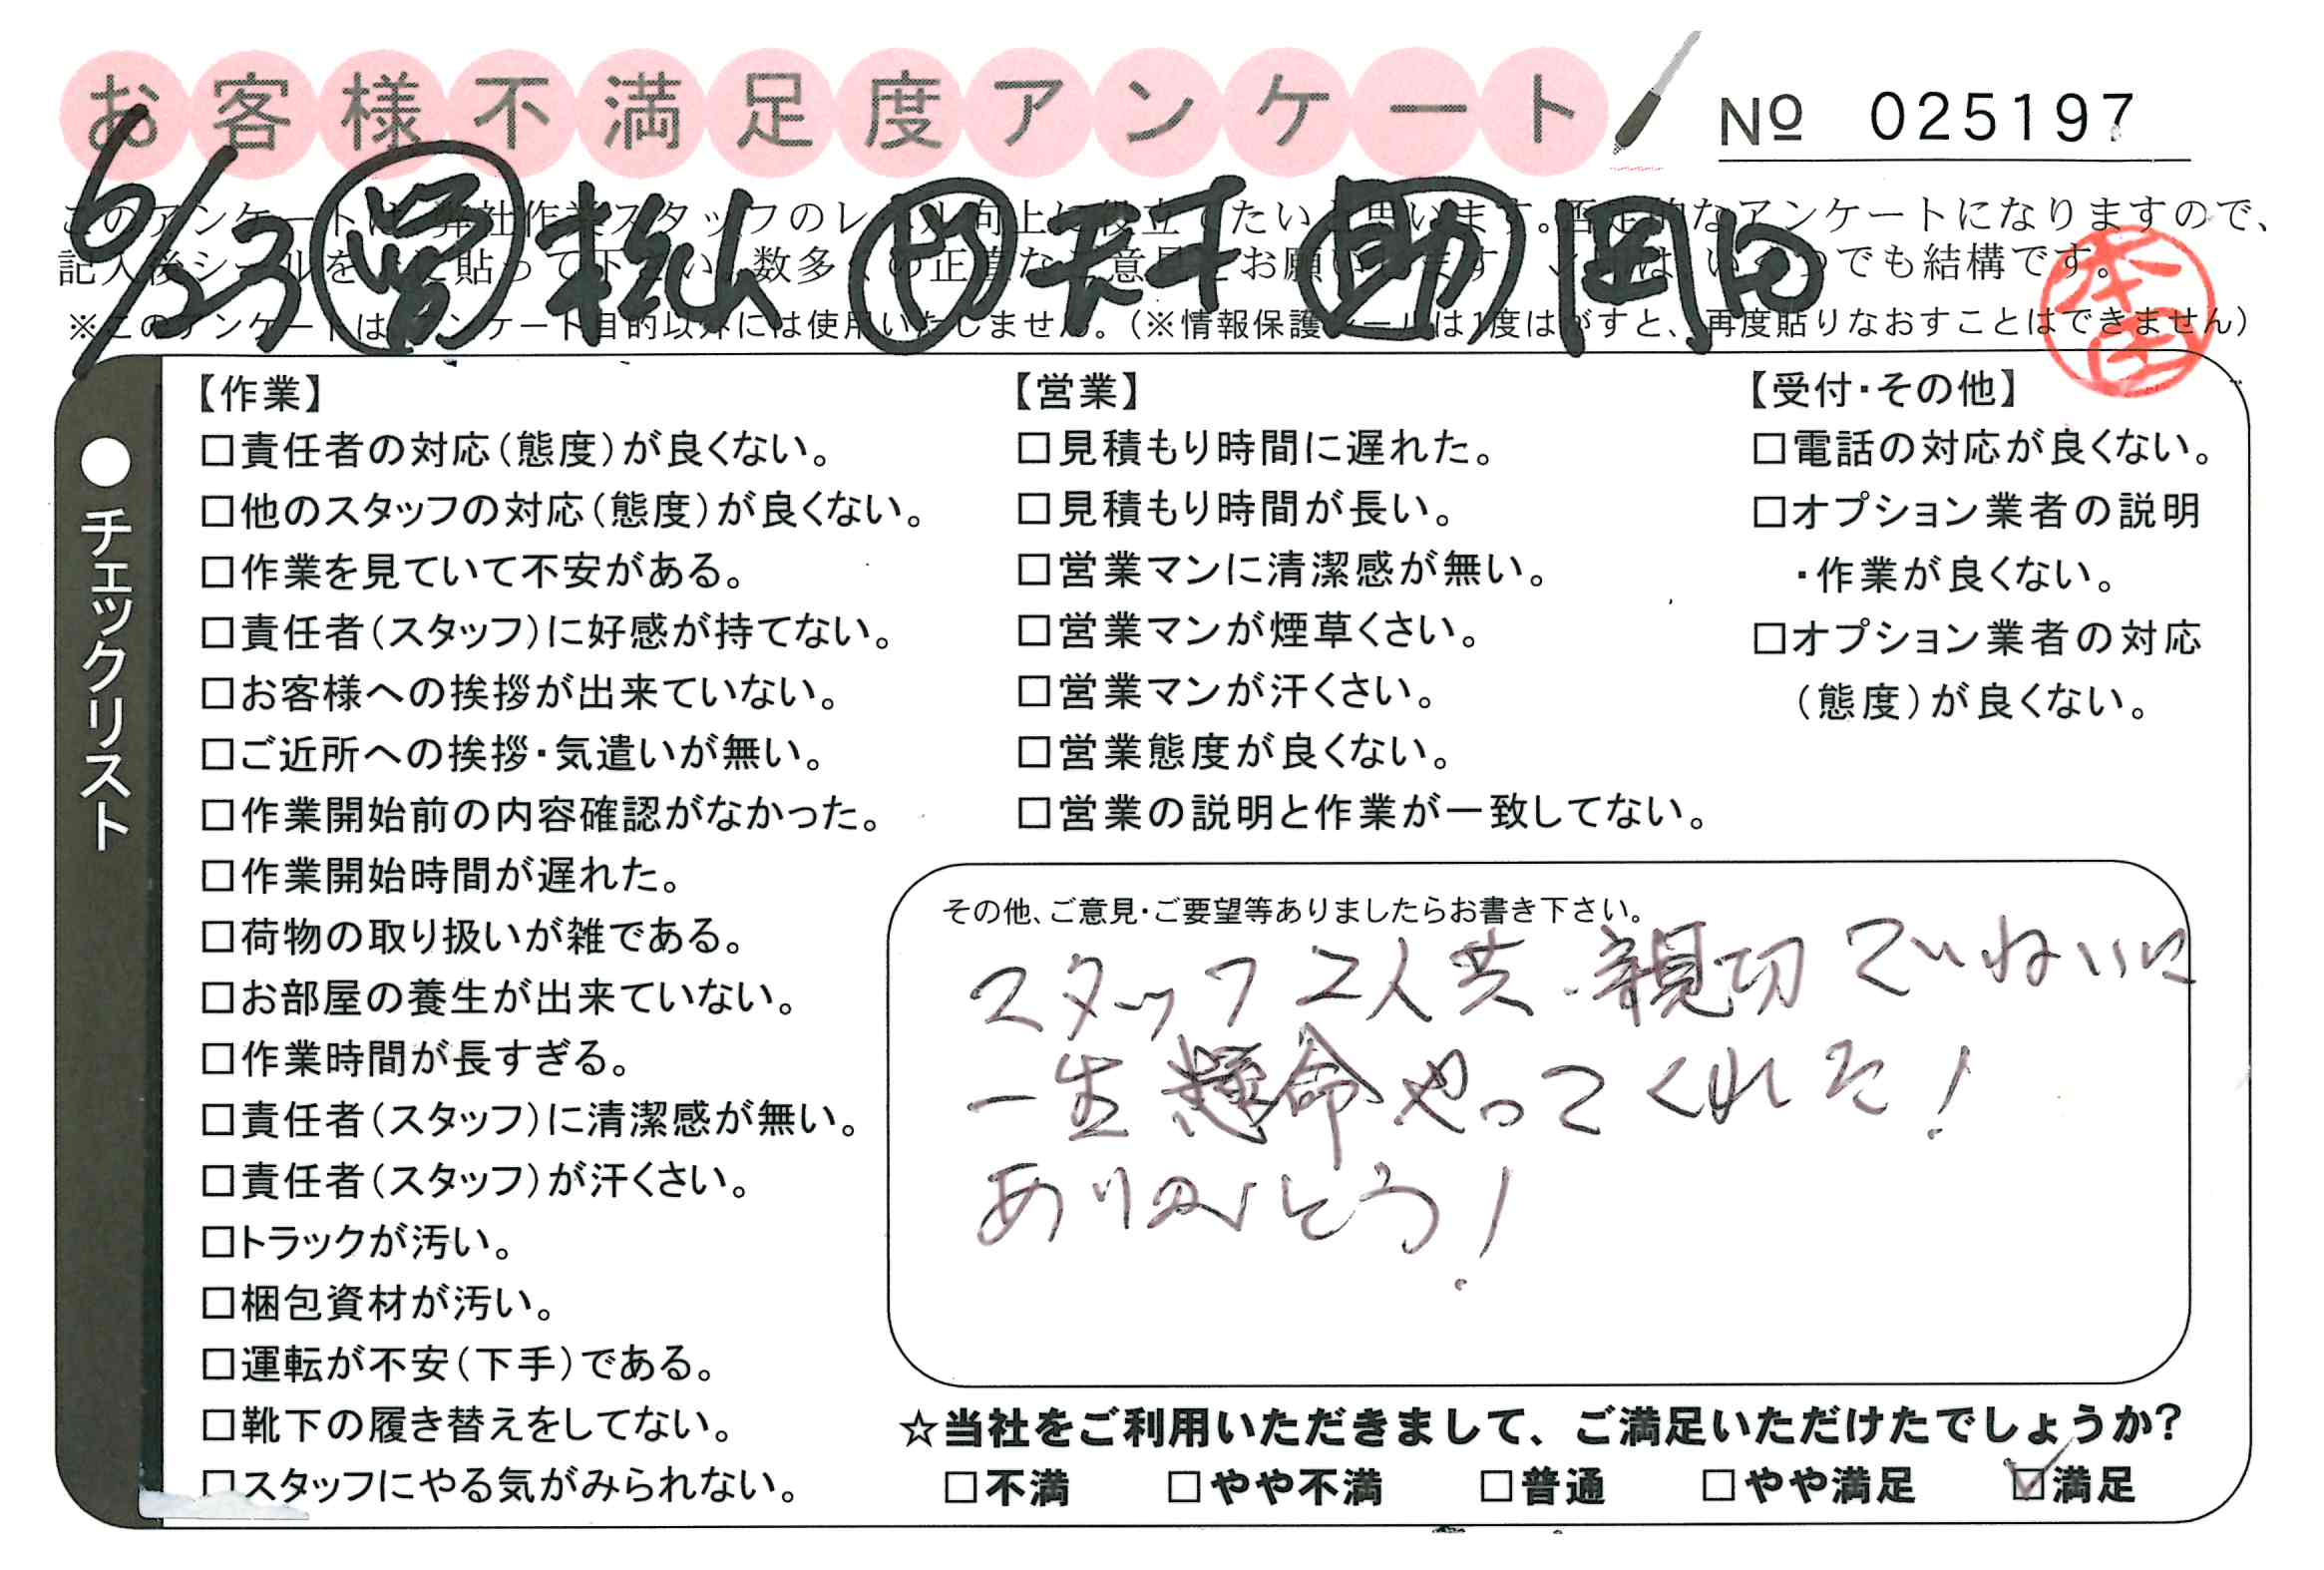 お客様不満足度アンケート
№ 025197
6/23 営 松山 ド 助 岡田
このアンケートは、弊社作業スタッフのレベル向上に役立てたいと思います。否定的なアンケートになりますので、
記入後シールを 貼って下さい。数多くの正直なご意見をお願いします いくつでも結構です。
※このアンケートはアンケート目的以外には使用いたしません。(※情報保護シールは1度はがすと、再度貼りなおすことはできません)
●チェックリスト
【作業】
□責任者の対応(態度)が良くない。
□他のスタッフの対応(態度)が良くない。
□作業を見ていて不安がある。
□責任者(スタッフ)に好感が持てない。
□お客様への挨拶が出来ていない。
□ご近所への挨拶・気遣いが無い。
□作業開始前の内容確認がなかった。
□作業開始時間が遅れた。
□荷物の取り扱いが雑である。
□お部屋の養生が出来ていない。
□作業時間が長すぎる。
□責任者(スタッフ)に清潔感が無い。
□責任者(スタッフ)が汗くさい。
□トラックが汚い。
□梱包資材が汚い。
□運転が不安(下手)である。
□靴下の履き替えをしてない。
□スタッフにやる気がみられない。
【営業】
□見積もり時間に遅れた。
□見積もり時間が長い。
□営業マンに清潔感が無い。
□営業マンが煙草くさい。
□営業マンが汗くさい。
□営業態度が良くない。
□営業の説明と作業が一致してない。
【受付・その他】
□電話の対応が良くない。
□オプション業者の説明
・作業が良くない。
□オプション業者の対応
(態度)が良くない。
その他、ご意見・ご要望等ありましたらお書き下さい。
スタッフ2人共、親切ていねいに
一生懸命やってくれた!
ありがとう!
☆当社をご利用いただきまして、ご満足いただけたでしょうか?
□不満 □やや不満 □普通 □やや満足 ☑満足